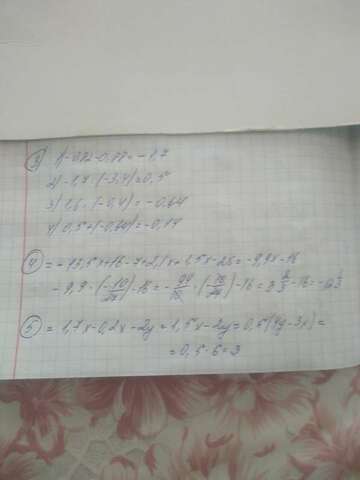 ③ 1) -0,82-0,88=-1,7
2) -1,7:(-3,4)=0,5
3) 1,6·(-0,4)=-0,64
4) 0,5+(-0,64)=-0,14
④ =-13,5x+16-7+2,1x+1,5x-25=-9,9x-16
-9,9·(-10/27)-16=-99/10·(-10/27)-16=3 2/3-16=-12 1/3
⑤ =1,7x-0,2x-2y=1,5x-2y=0,5(4y-3x)=
=0,5·6=3